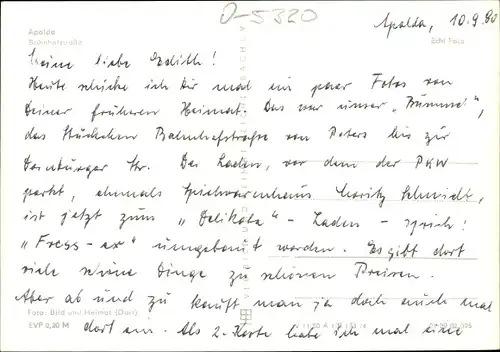 D-5320
Apolda, 10.9.80
Apolda
Bahnhofstraße
Echt Foto
Meine liebe Edith!
Heute schicke ich Dir mal ein paar Fotos von
Deiner früheren Heimat. Das war unser „Bummel",
das Stückchen Bahnhofstraße von Peters bis zur
Dornburger Str. Der Laden, vor dem der PKW
parkt, ehemals Spielwarenhaus Moritz Schmidt,
ist jetzt zum „Delikat" - Laden - sprich!
„Fress-ex" umgebaut worden. Es gibt dort
viele schöne Dinge zu schönen Preisen.
Aber ab und zu kauft man ja doch auch mal
Foto: Bild und Heimat (Darr)
EVP 0,20 M
dort ein. Als 2. Karte habe ich mal eine